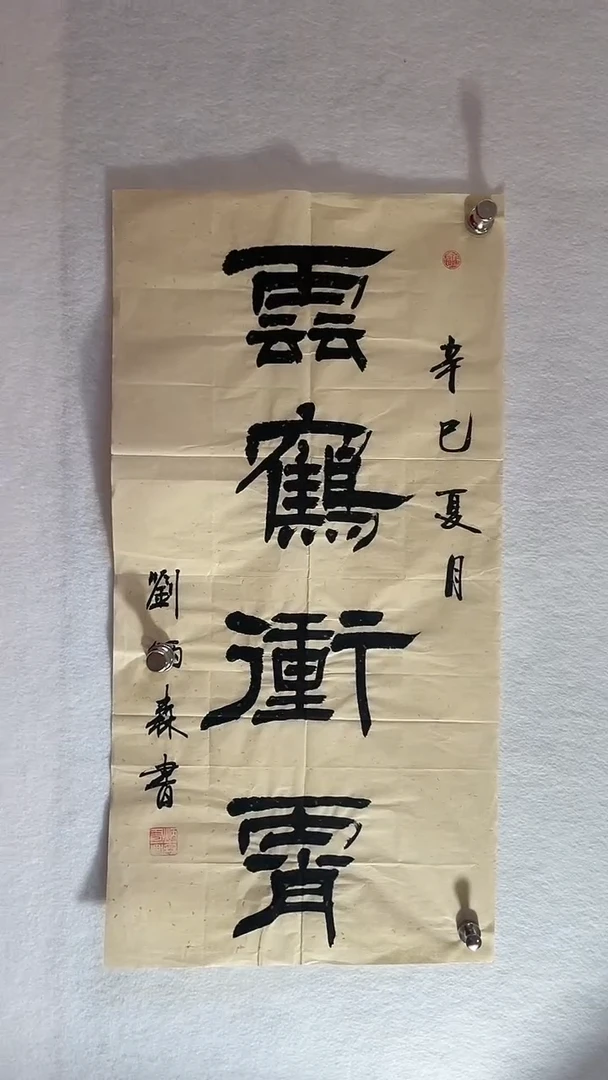 辛巳夏月
雲鶴衝霄
劉炳森書